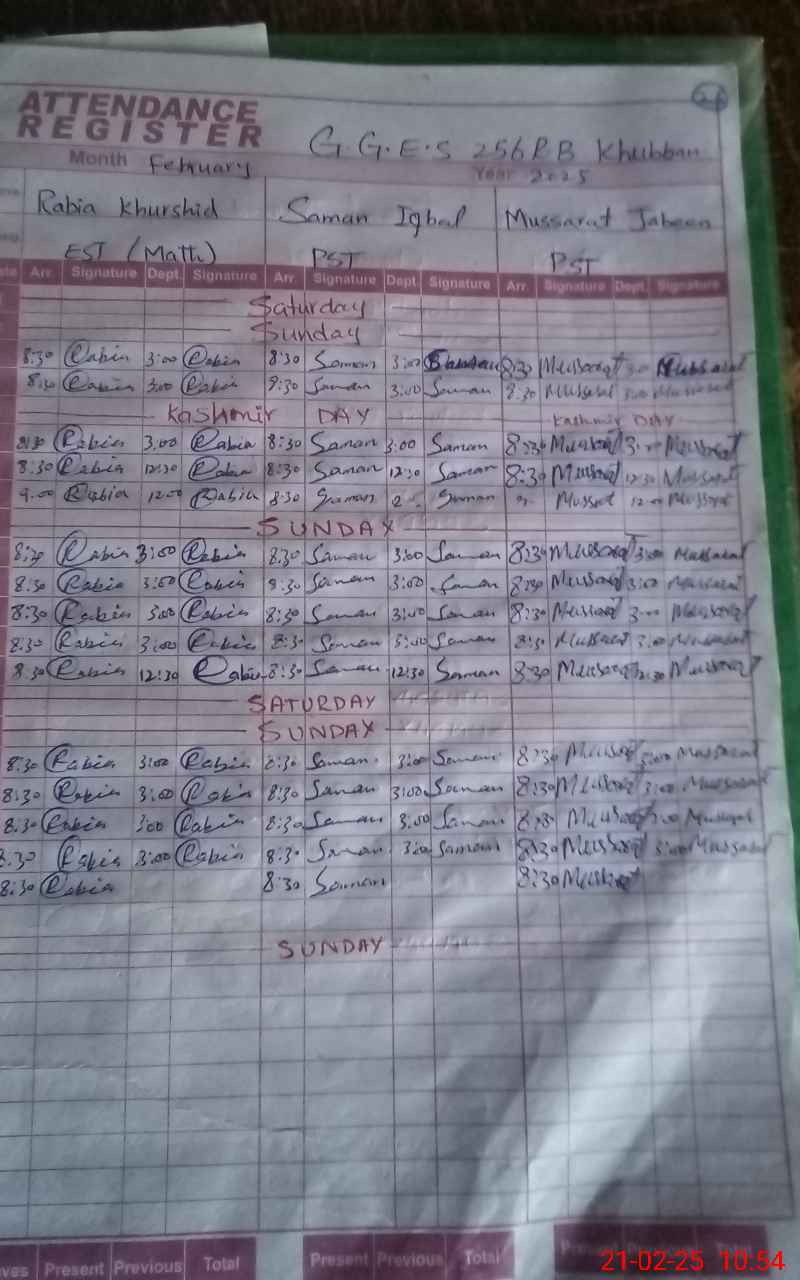 ATTENDANCE
REGISTER
G.G.E.S 256RB Khubban
Month February Year 2025
Rabia Khurshid Saman Iqbal Mussarat Jabeen
EST (Math) PST PST
Arr. Signature Dept. Signature Arr. Signature Dept. Signature Arr. Signature Dept. Signature
Saturday
Sunday
8:30 Rabia 3:00 Rabia 8:30 Saman 3:00 Saman 8:30 Mussarat 3:00 Mussarat
8:30 Rabia 3:00 Rabia 8:30 Saman 3:00 Saman 8:30 Mussarat 3:00 Mussarat
Kashmir DAY Kashmir DAY
8:30 Rabia 3:00 Rabia 8:30 Saman 3:00 Saman 8:30 Mussarat 3:00 Mussarat
8:30 Rabia 12:30 Rabia 8:30 Saman 12:30 Saman 8:30 Mussarat 12:30 Mussarat
9:00 Rabia 12:00 Rabia 8:30 Saman Saman Mussarat 12:00 Mussarat
SUNDAY
8:30 Rabia 3:00 Rabia 8:30 Saman 3:00 Saman 8:30 Mussarat 3:00 Mussarat
8:30 Rabia 3:00 Rabia 8:30 Saman 3:00 Saman 8:30 Mussarat 3:00 Mussarat
8:30 Rabia 3:00 Rabia 8:30 Saman 3:00 Saman 8:30 Mussarat 3:00 Mussarat
8:30 Rabia 3:00 Rabia 8:30 Saman 3:00 Saman 8:30 Mussarat 3:00 Mussarat
8:30 Rabia 12:30 Rabia 8:30 Saman 12:30 Saman 8:30 Mussarat 12:30 Mussarat
SATURDAY
SUNDAY
8:30 Rabia 3:00 Rabia 8:30 Saman 3:00 Saman 8:30 Mussarat 3:00 Mussarat
8:30 Rabia 3:00 Rabia 8:30 Saman 3:00 Saman 8:30 Mussarat 3:00 Mussarat
8:30 Rabia 3:00 Rabia 8:30 Saman 3:00 Saman 8:30 Mussarat 3:00 Mussarat
8:30 Rabia 3:00 Rabia 8:30 Saman 3:00 Saman 8:30 Mussarat 3:00 Mussarat
8:30 Rabia 8:30 Saman 8:30 Mussarat
SUNDAY
Present Previous Total Present Previous Total Present Previous
21-02-25 10:54